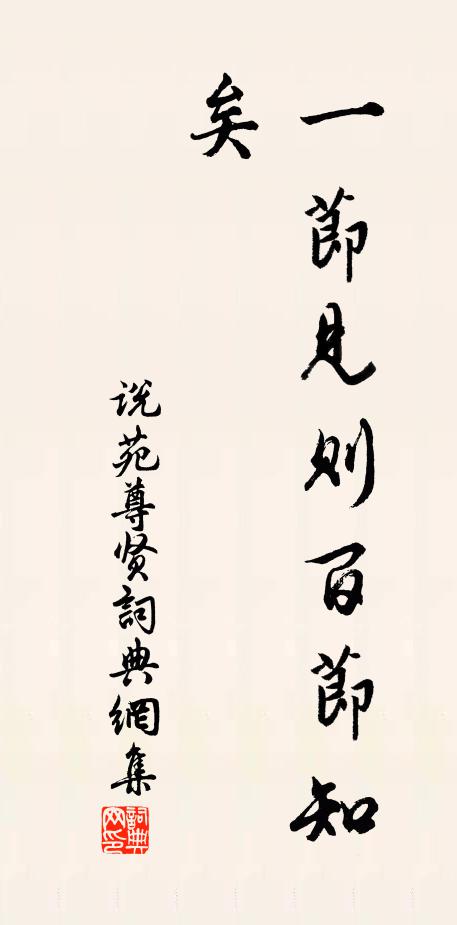 一節見则百節知
矣
说苑尊贤詞典網集
詞典
网印